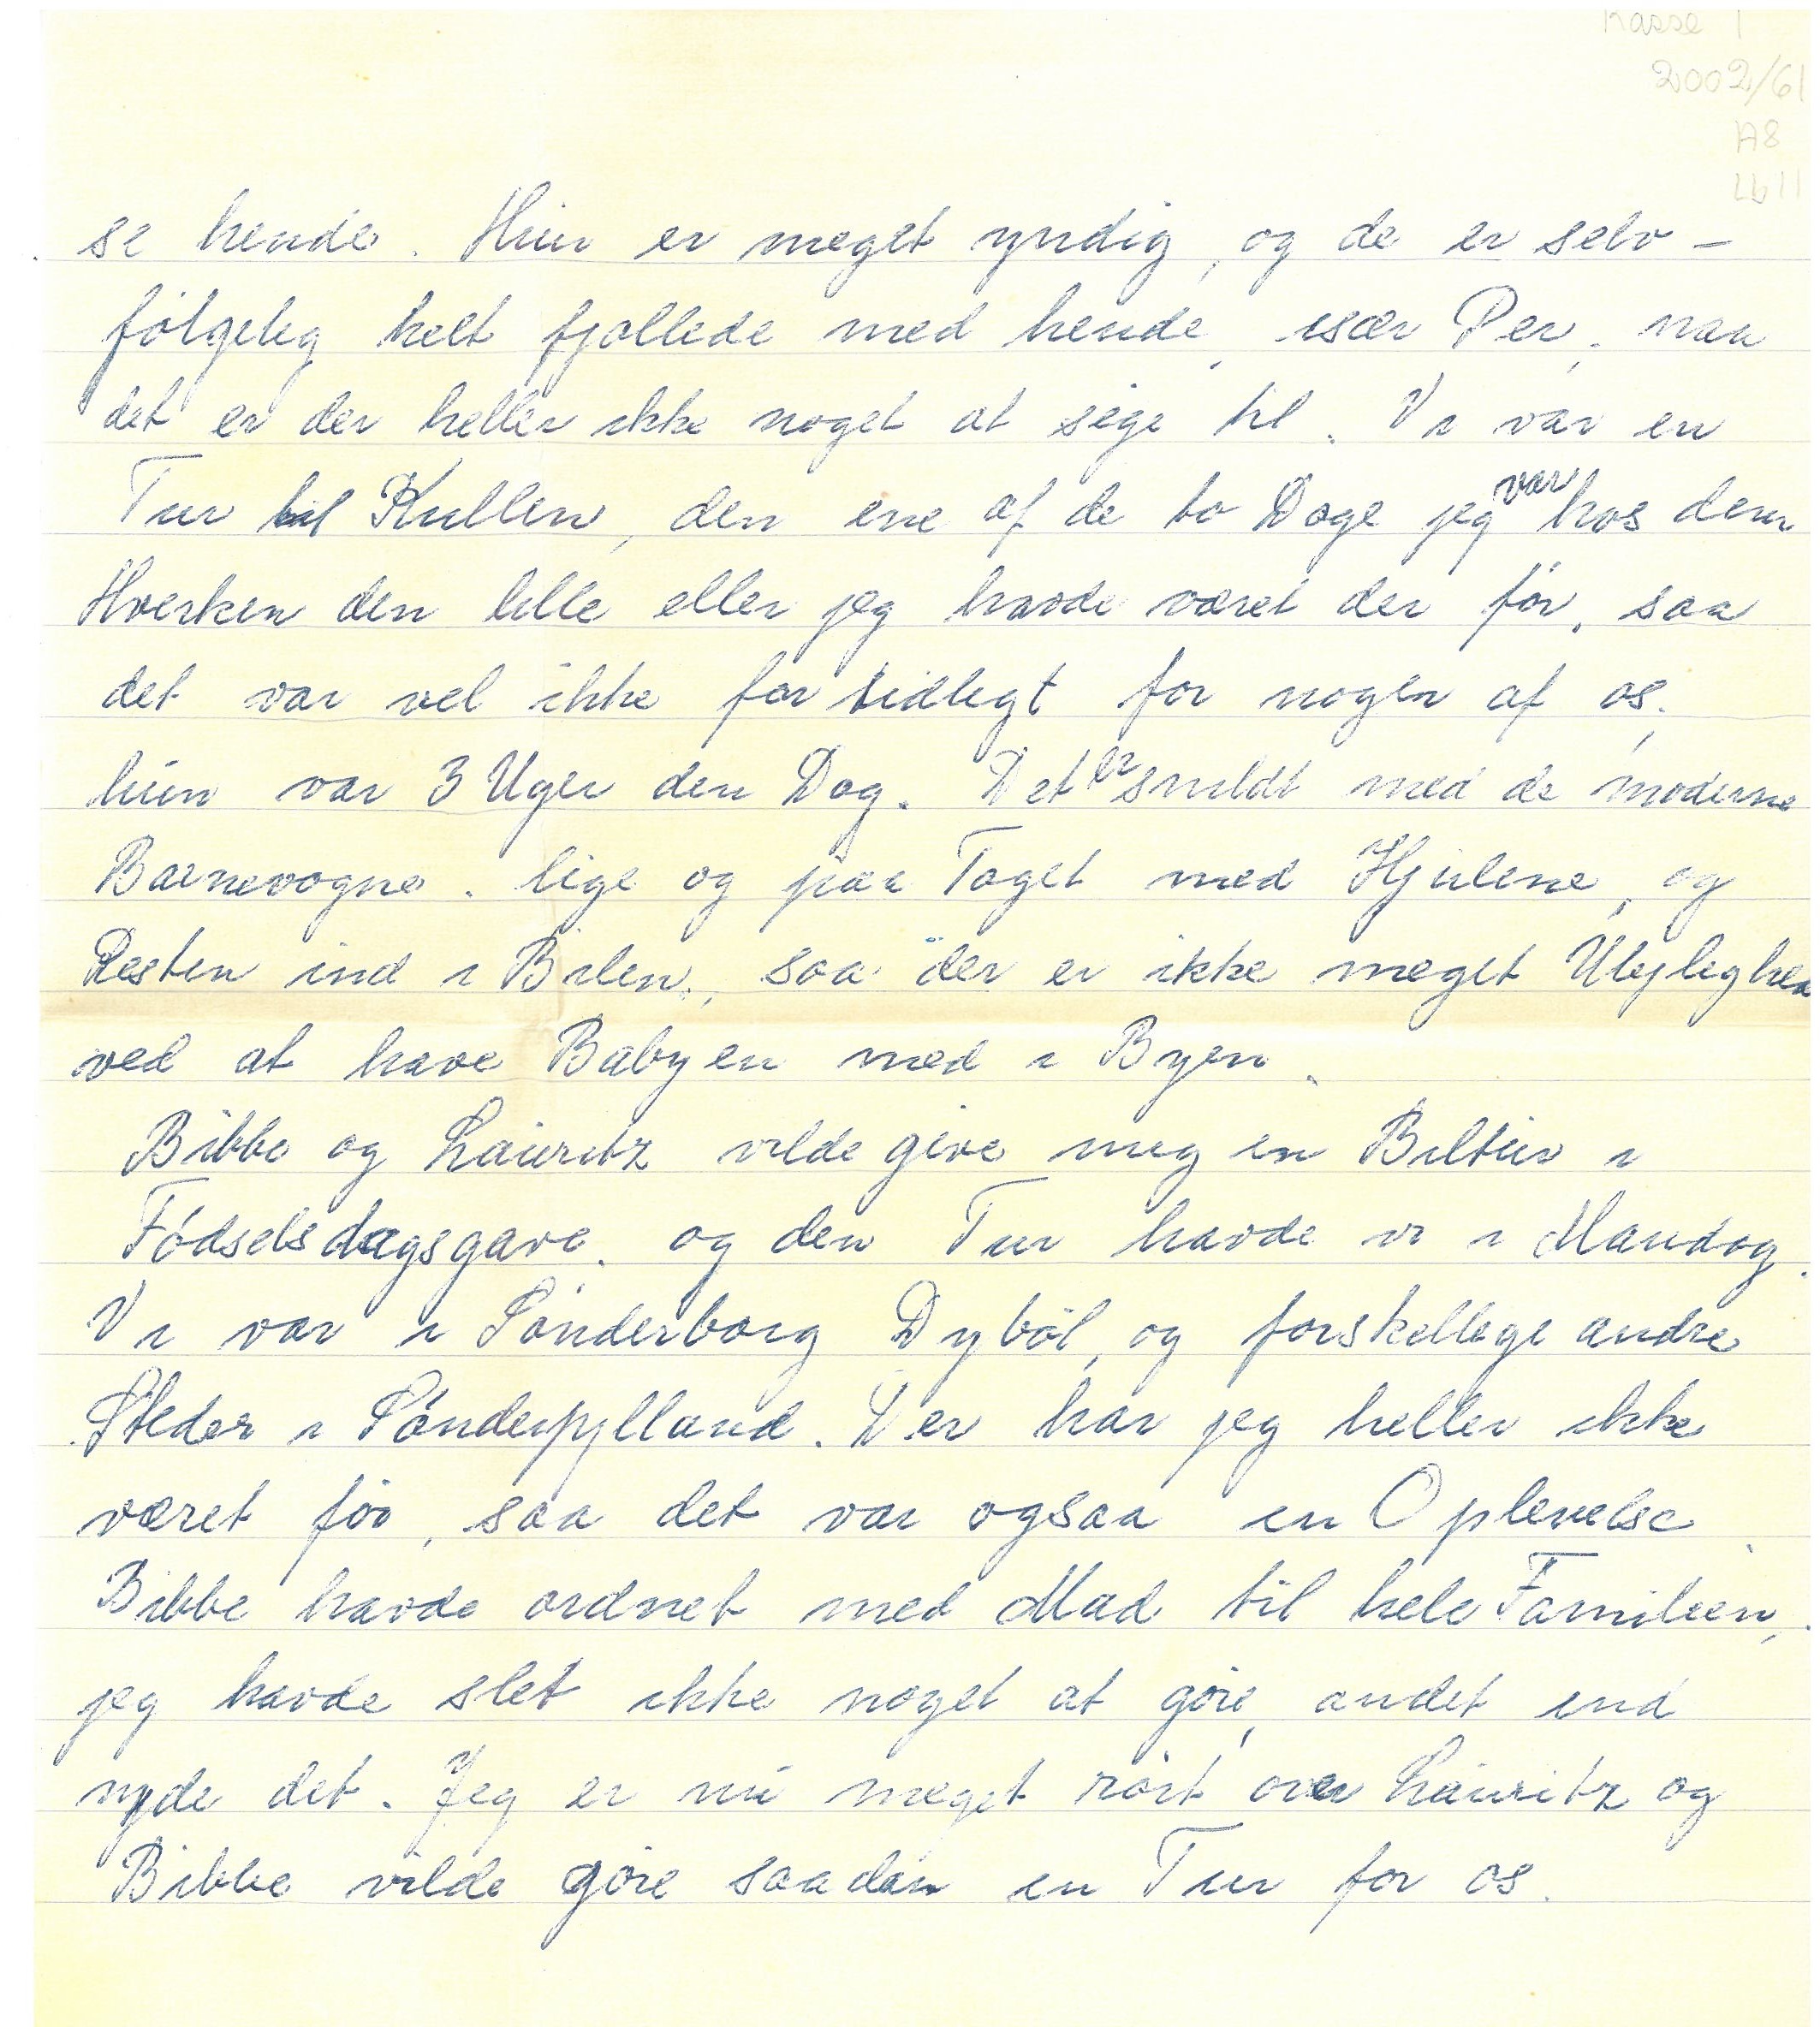 Kasse 1
2002/61
A8
Lb11
se hende. Hun er meget yndig, og de er selv-
følgelig helt fjollede med hende, især Per, naa
det er der heller ikke noget at sige til. Vi var en
Tur til Kullen, den ene af de to Dage jeg var hos dem
Hverken den lille eller jeg havde været der før, saa
det var vel ikke for tidligt for nogen af os,
hun var 3 Uger den Dag. Det er snildt med de moderne
Barnevogne. lige og paa Taget med Hjulene, og
Resten ind i Bilen, saa der er ikke meget Ulejlighed
ved at have Babyen med i Byen.
Bibbe og Lauritz vilde give mig en Biltur i
Fødselsdagsgave. og den Tur havde vi i Mandag.
Vi var i Sønderborg Dybøl, og forskellige andre
Steder i Sønderjylland. Der har jeg heller ikke
været før, saa det var ogsaa en Oplevelse.
Bibbe havde ordnet med Mad til hele Familien,
jeg havde slet ikke noget at gøre, andet end
nyde det. Jeg er nu meget rørt over Lauritz og
Bibbe vilde gøre saadan en Tur for os.